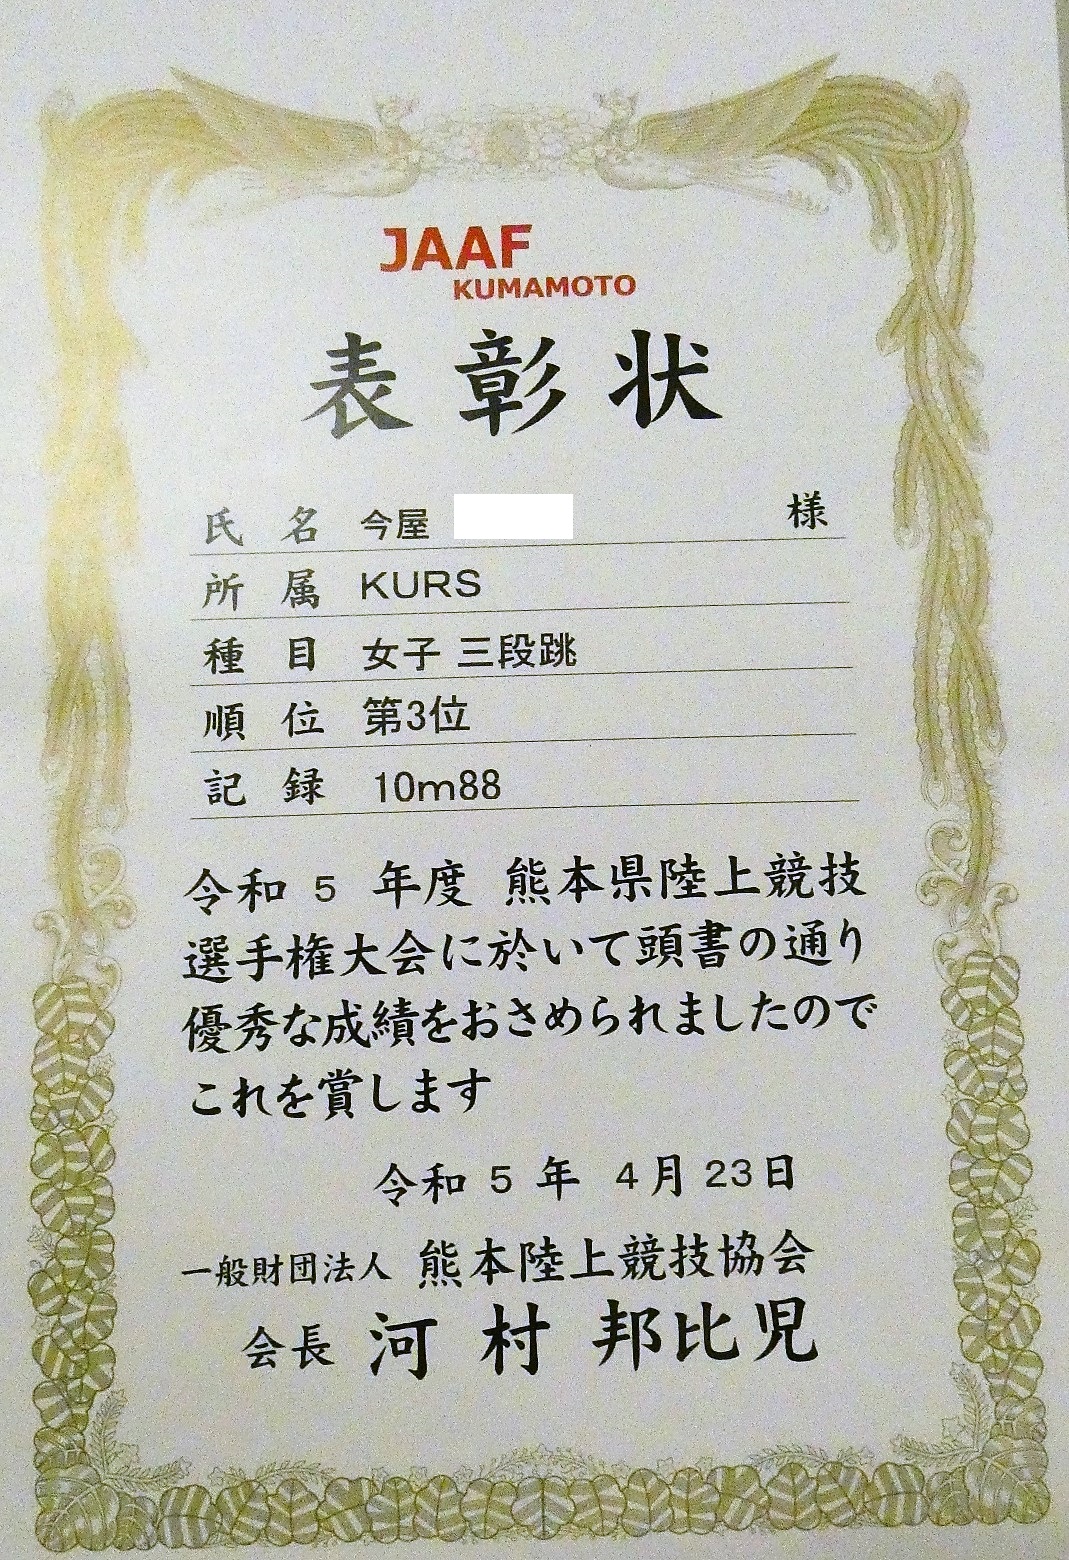 JAAF
KUMAMOTO
表彰状
氏名 今屋 様
所属 KURS
種目 女子 三段跳
順位 第3位
記録 10m88
令和 5 年度 熊本県陸上競技
選手権大会に於いて頭書の通り
優秀な成績をおさめられましたので
これを賞します
令和 5 年 4月 23日
一般財団法人 熊本陸上競技協会
会長 河村 邦比児